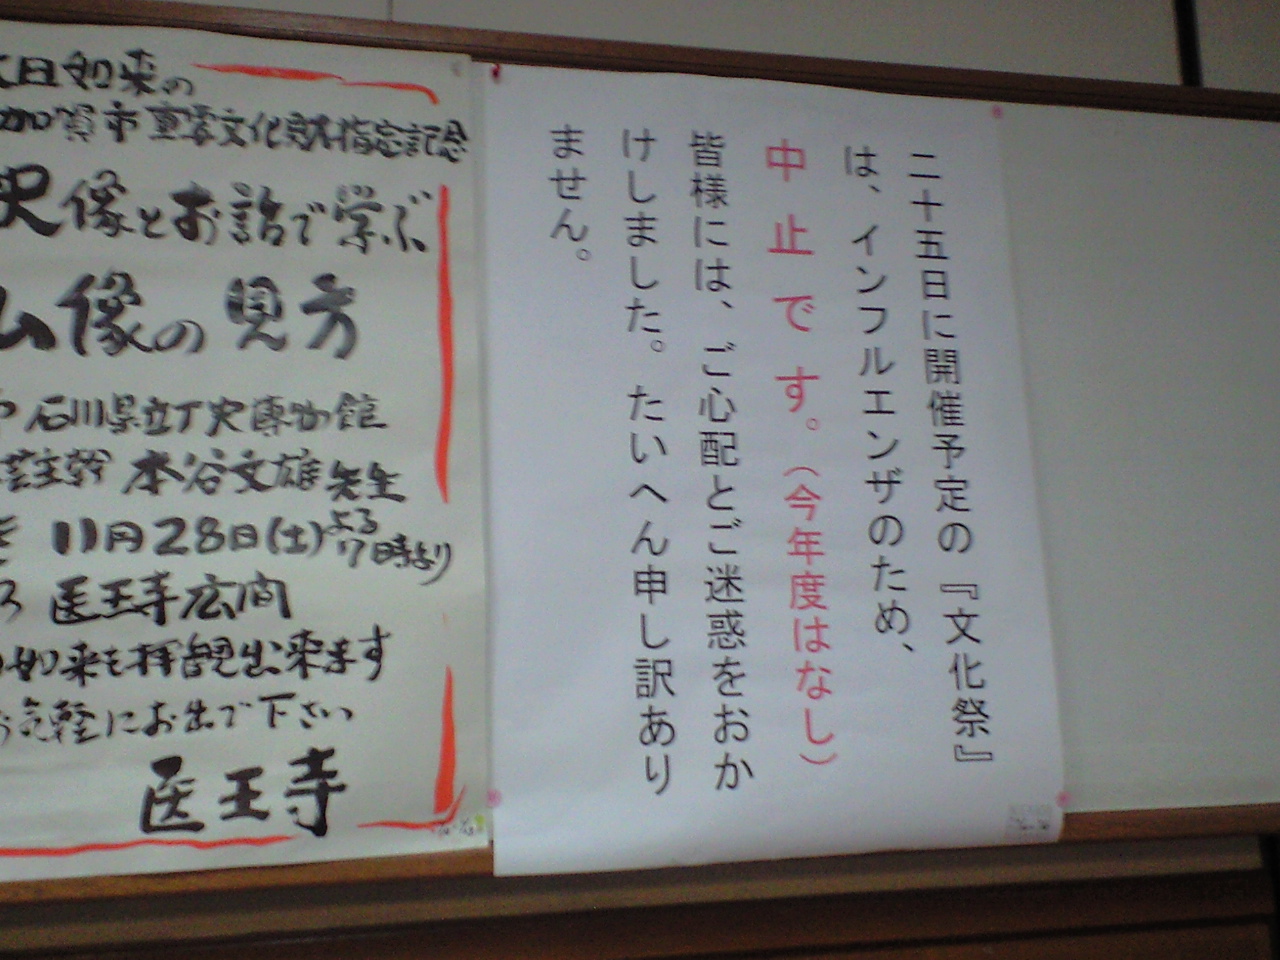 大日如来の
加賀市重要文化財指定記念
映像とお話で学ぶ
仏像の見方
石川県立歴史博物館
主幹 本谷文雄先生
11月28日(土)よる7時より
医王寺広間
如来も拝観出来ます
お気軽にお出で下さい
医王寺
二十五日に開催予定の『文化祭』
は、インフルエンザのため、
中止です。(今年度はなし)
皆様には、ご心配とご迷惑をおか
けしました。たいへん申し訳あり
ません。